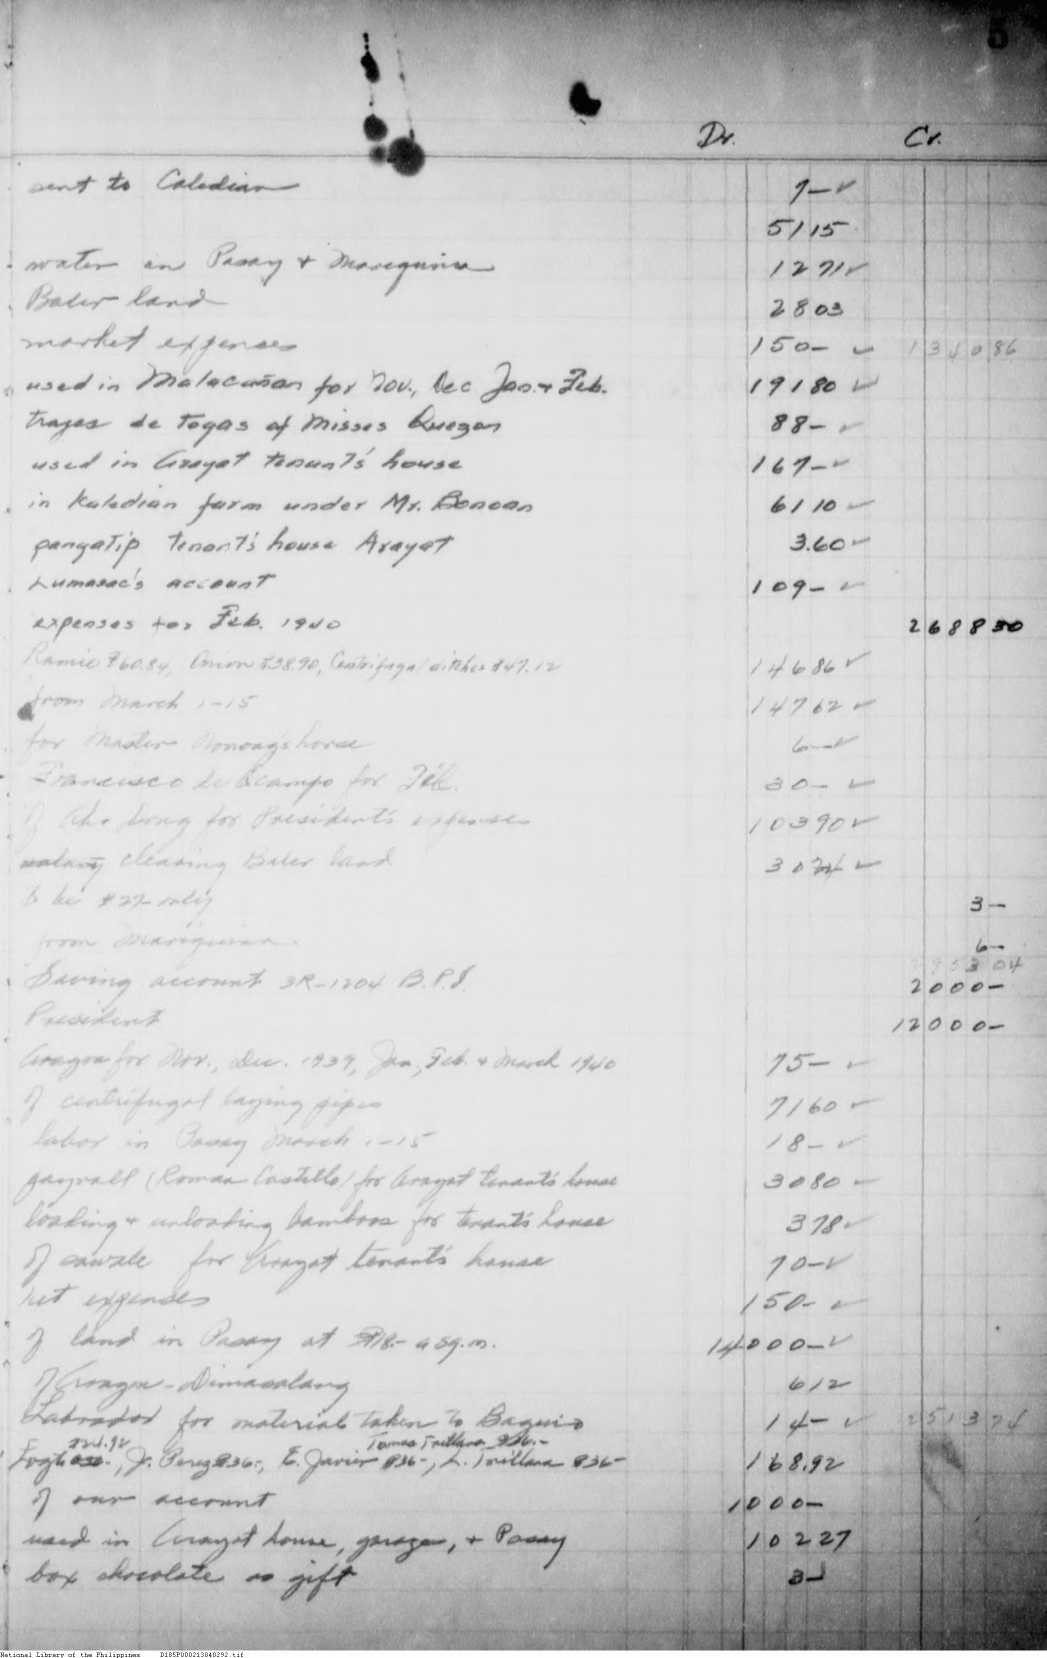 5
Dr. Cr.
sent to Caledian 7—✓
51 15
water in Pasay & Mariquina 12 71✓
Baler land 28 03
market expenses 150— ✓ 1340 86
used in Malacañan for Nov., Dec Jan. & Feb. 191 80 ✓
trajes de Togas of Misses Quezon 88— ✓
used in Arayat tenant's house 167—✓
in Kaledian farm under Mr. Bonoan 61 10 ✓
pangatip tenant's house Arayat 3.60✓
Lumasac's account 109— ✓
expenses for Feb. 1940 2688 30
Ramie ₱60.84, Onion ₱38.90, Centrifugal ditches ₱47.12 146 86✓
from March 1-15 147 62 ✓
for Master Nonong's horse 6—✓
Francisco de Ocampo for Feb. 30— ✓
of Aho Dong for President's expenses 103 90✓
clearing Baler land 30 ✓
to be ₱27— only 3—
from Mariquina. 6—
3 04
Saving account SR-1204 B.P.I. 2000—
President 12000—
Aragon for Nov., Dec. 1939, Jan., Feb. & March 1940 75— ✓
of centrifugal laying pipes 71 60 ✓
labor in Pasay March 1-15 18— ✓
payroll (Roman Castillo) for Arayat tenant's house 30 80 ✓
loading & unloading bamboos for tenant's house 3 78✓
of sawale for Arayat tenant's house 70—✓
ket expenses 150— ✓
of land in Pasay at ₱18.— a sq.m. 14000—✓
of Aragon - Dimasalang 6 12
Labrador for material taken to Baguio 14— ✓ 2513 74
₱24.92 Tomas Trillana ₱36.—
J. Perez ₱36—, E. Javier ₱36—, L. Trillana ₱36— 168.92
of our account 1000—
used in Arayat house, garage, & Pasay 102 27
box chocolate as gift 3—
National Library of the Philippines D185P000213040292.tif